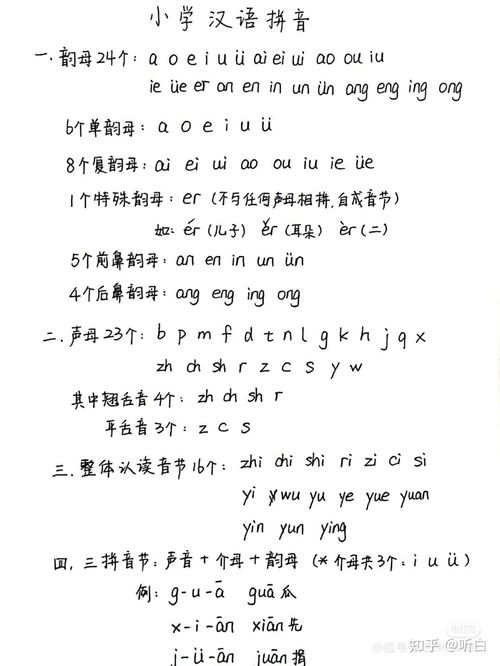 小学汉语拼音
一、韵母24个: a o e i u ü ai ei ui ao ou iu
ie üe er an en in un ün ang eng ing ong
6个单韵母: a o e i u ü
8个复韵母: ai ei ui ao ou iu ie üe
1个特殊韵母: er (不与任何声母相拼,自成音节)
如: ér (儿子) ěr (耳朵) èr (二)
5个前鼻韵母: an en in un ün
4个后鼻韵母: ang eng ing ong
二、声母23个: b p m f d t n l g k h j q x
zh ch sh r z c s y w
其中翘舌音4个: zh ch sh r
平舌音3个: z c s
三、整体认读音节16个: zhi chi shi ri zi ci si
yi wu yu ye yue yuan
yin yun ying
四、三拼音节: 声音+介母+韵母 (*介母共3个: i u ü)
例: g-u-ā guā 瓜
x-i-ān xiān 先
j-ü-ān juān 捐
小红书
知乎 @听白